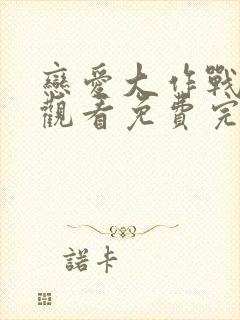 戀愛大作戰
觀看免費完
諾卡